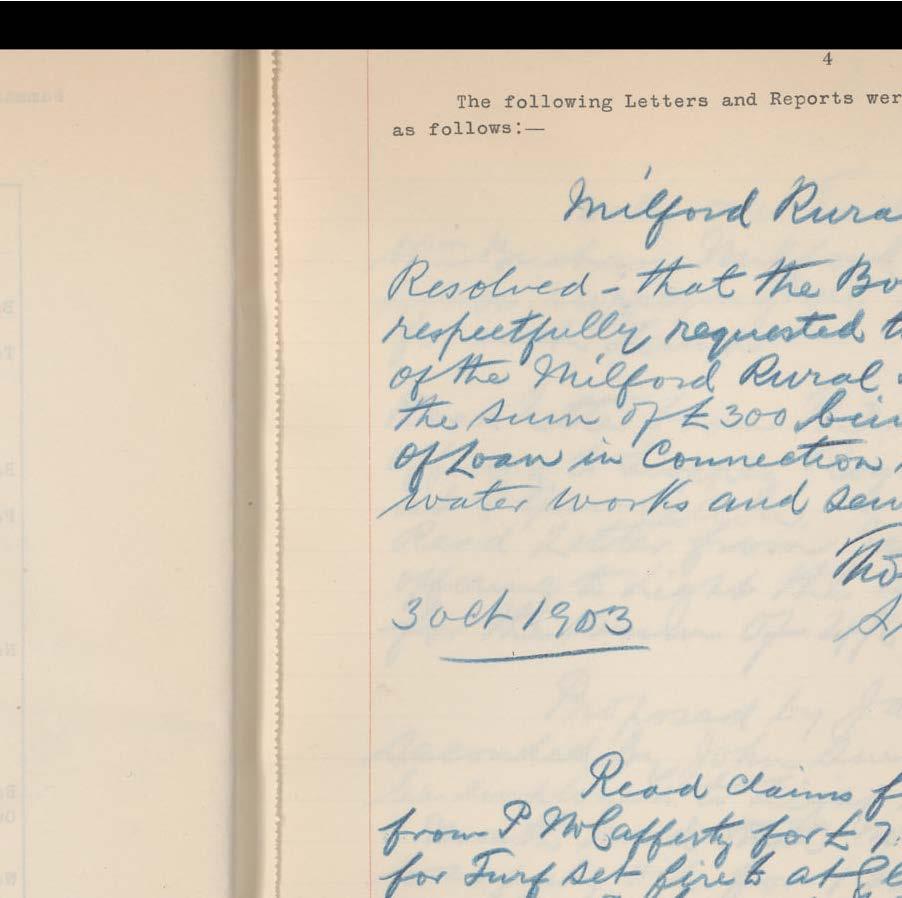 4
The following Letters and Reports wer
as follows:—
Milford Rura
Resolved - that the Bo
respectfully requested t
of the Milford Rural
the sum of £300 bein
of Loan in Connection
water works and sew
Tho
3 oct 1903
Read claims f
from P McCafferty for £7.
for Turf set fire to at Gl